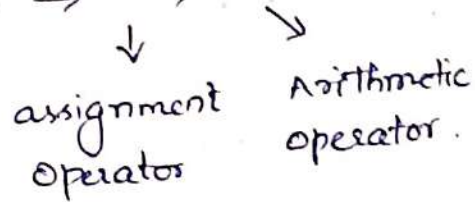 assignment
operator
Arithmetic
operator.